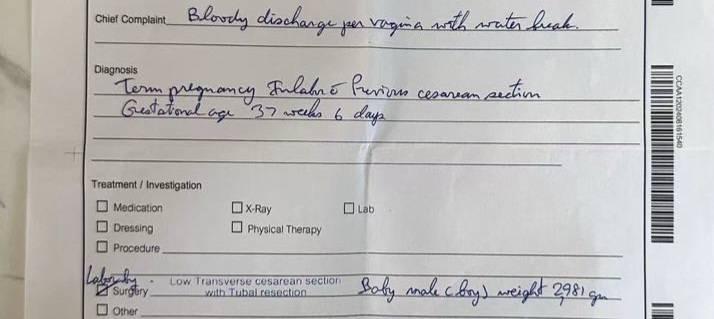 Chief Complaint Bloody discharge per vagina with water break.
Diagnosis
Term pregnancy Inlabor c̄ Previous cesarean section
Gestational age 37 weeks 6 days
Treatment / Investigation
Medication X-Ray Lab
Dressing Physical Therapy
Procedure
Low Transverse cesarean section
Surgery with Tubal resection Baby male (boy) weight 2,981 gm
Other
CCAA1202408161540